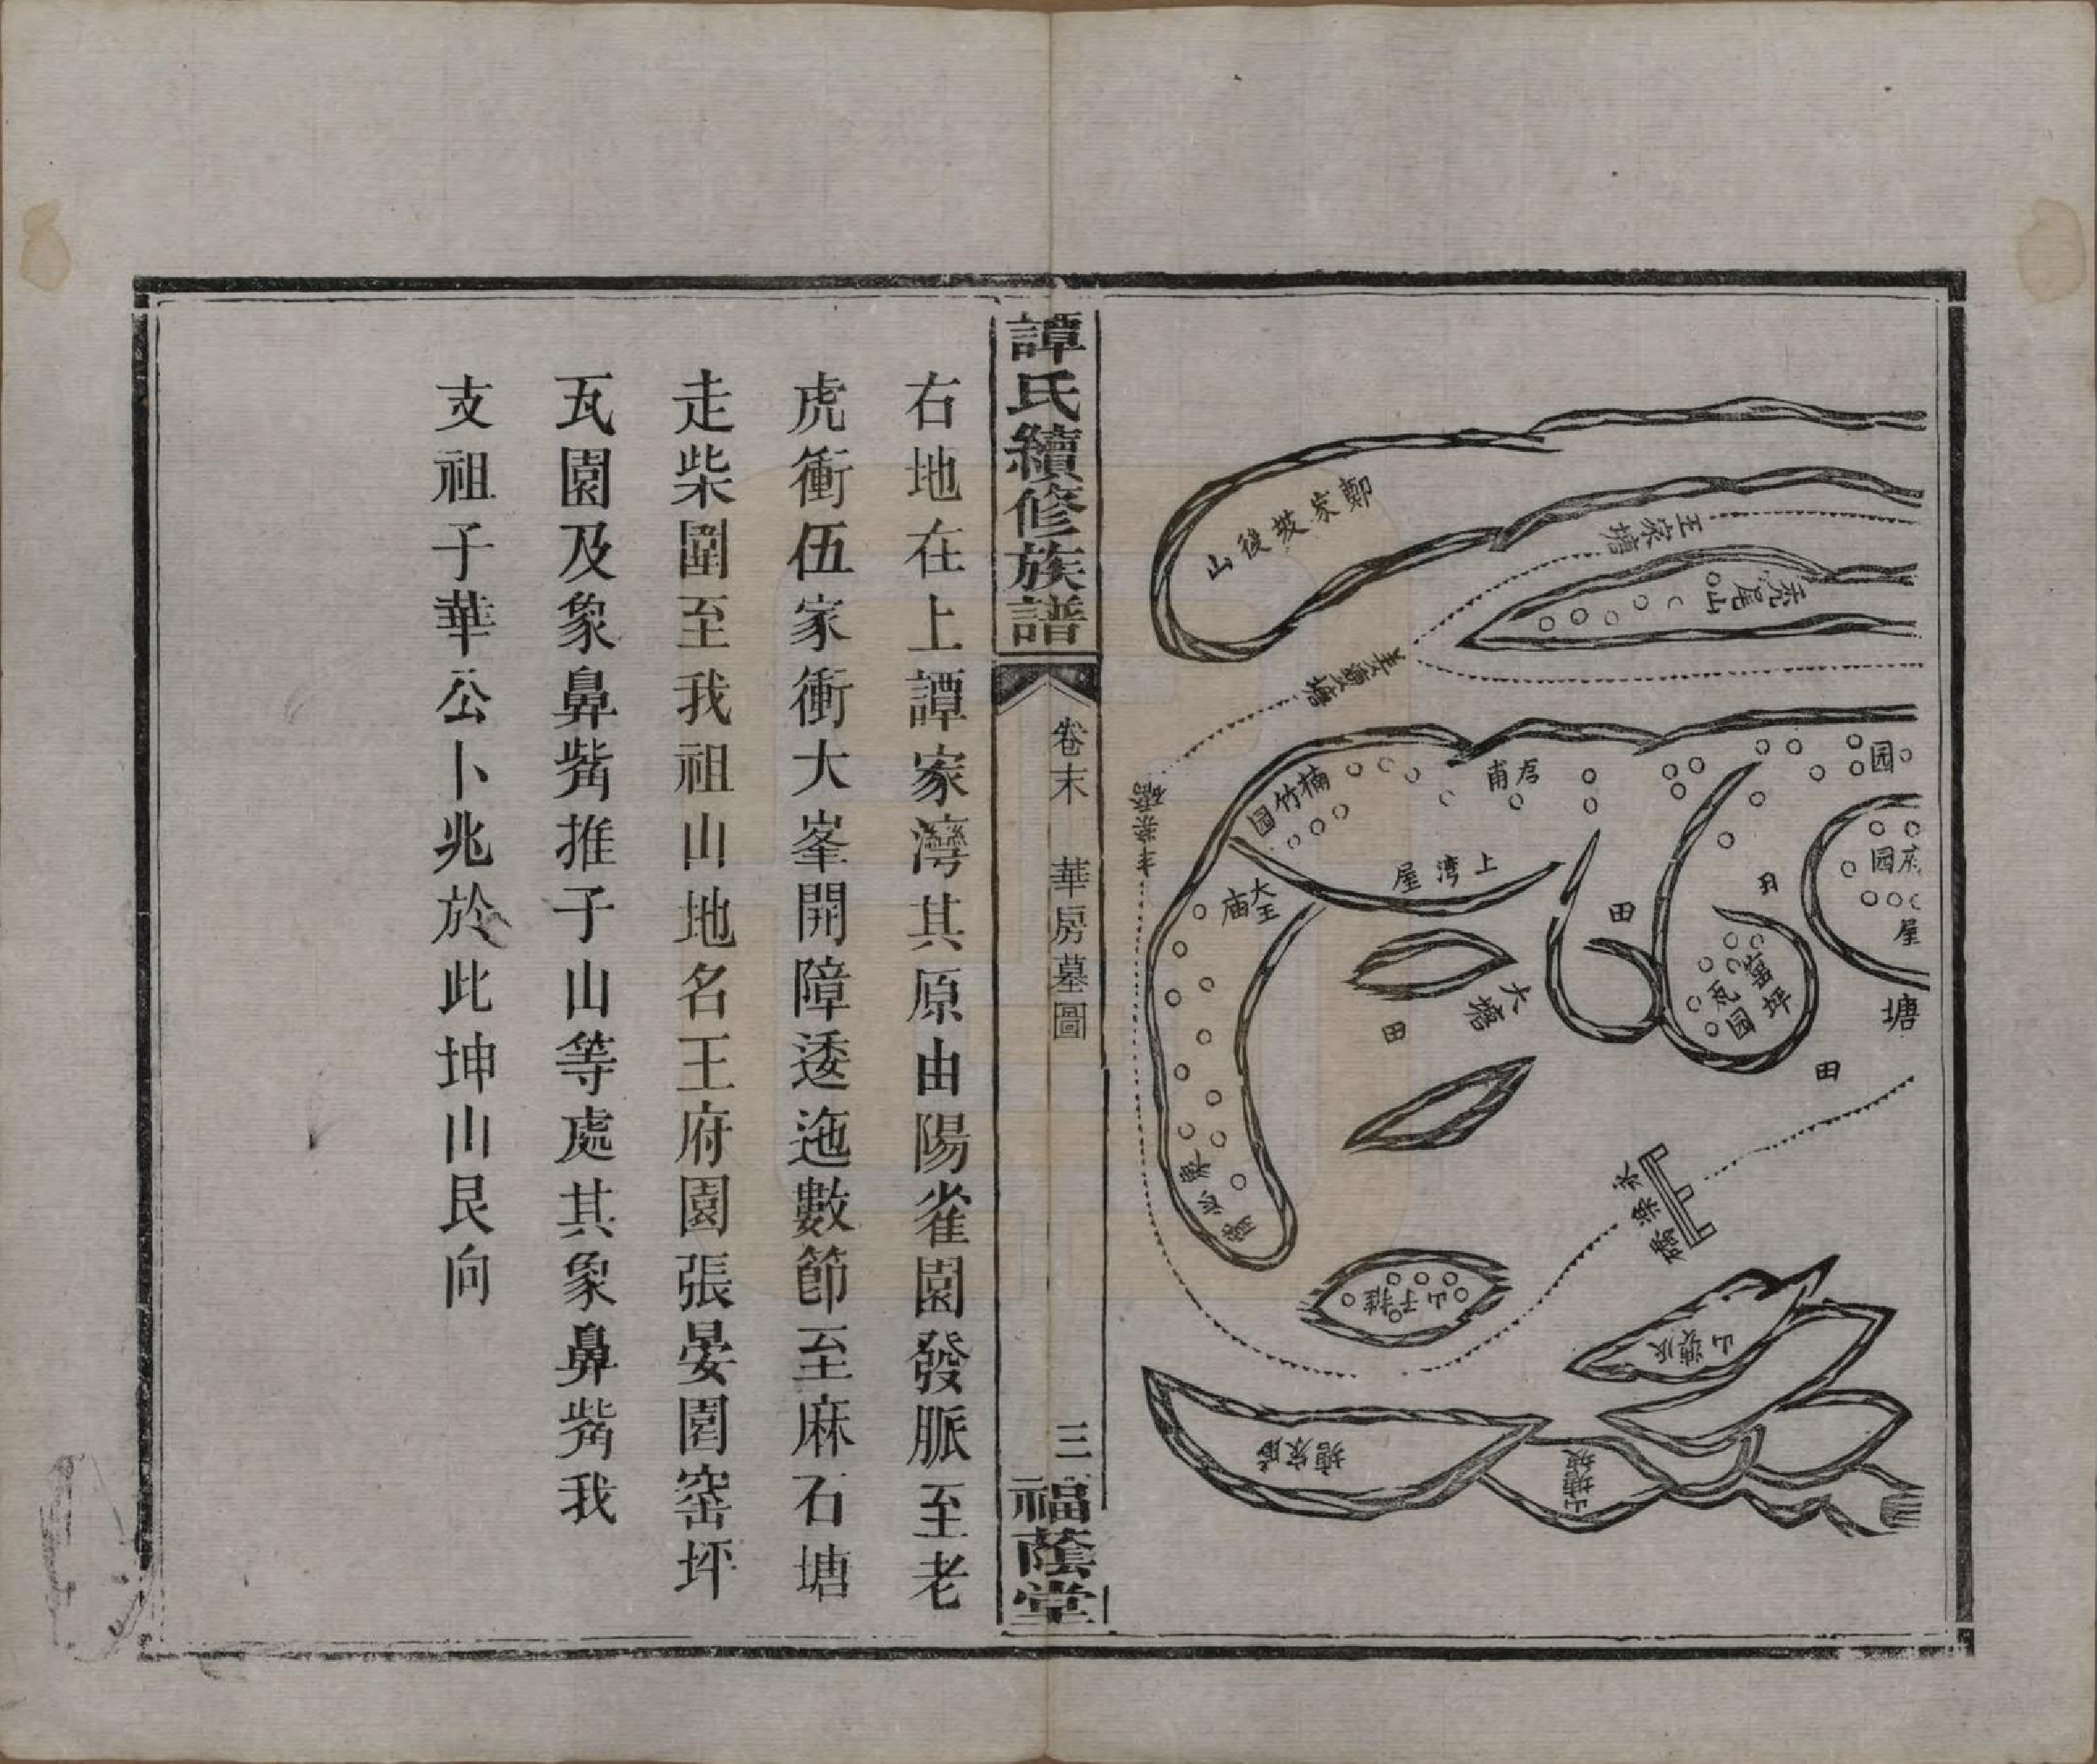 鄭家坡後山
王家塘
禿尾山
楠竹园
上湾屋
大王庙
田
大塘
田
园
府园
屋
窑坪瓦园
塘
田
推子山
譚氏續修族譜
卷末　華房墓圖
三
福蔭堂
右地在上譚家灣其原由陽雀園發脈至老
虎衝伍家衝大峯開障逶迤數節至麻石塘
走柴圍至我祖山地名王府園張晏園窑坪
瓦園及象鼻觜推子山等處其象鼻觜我
支祖子華公卜兆於此坤山艮向